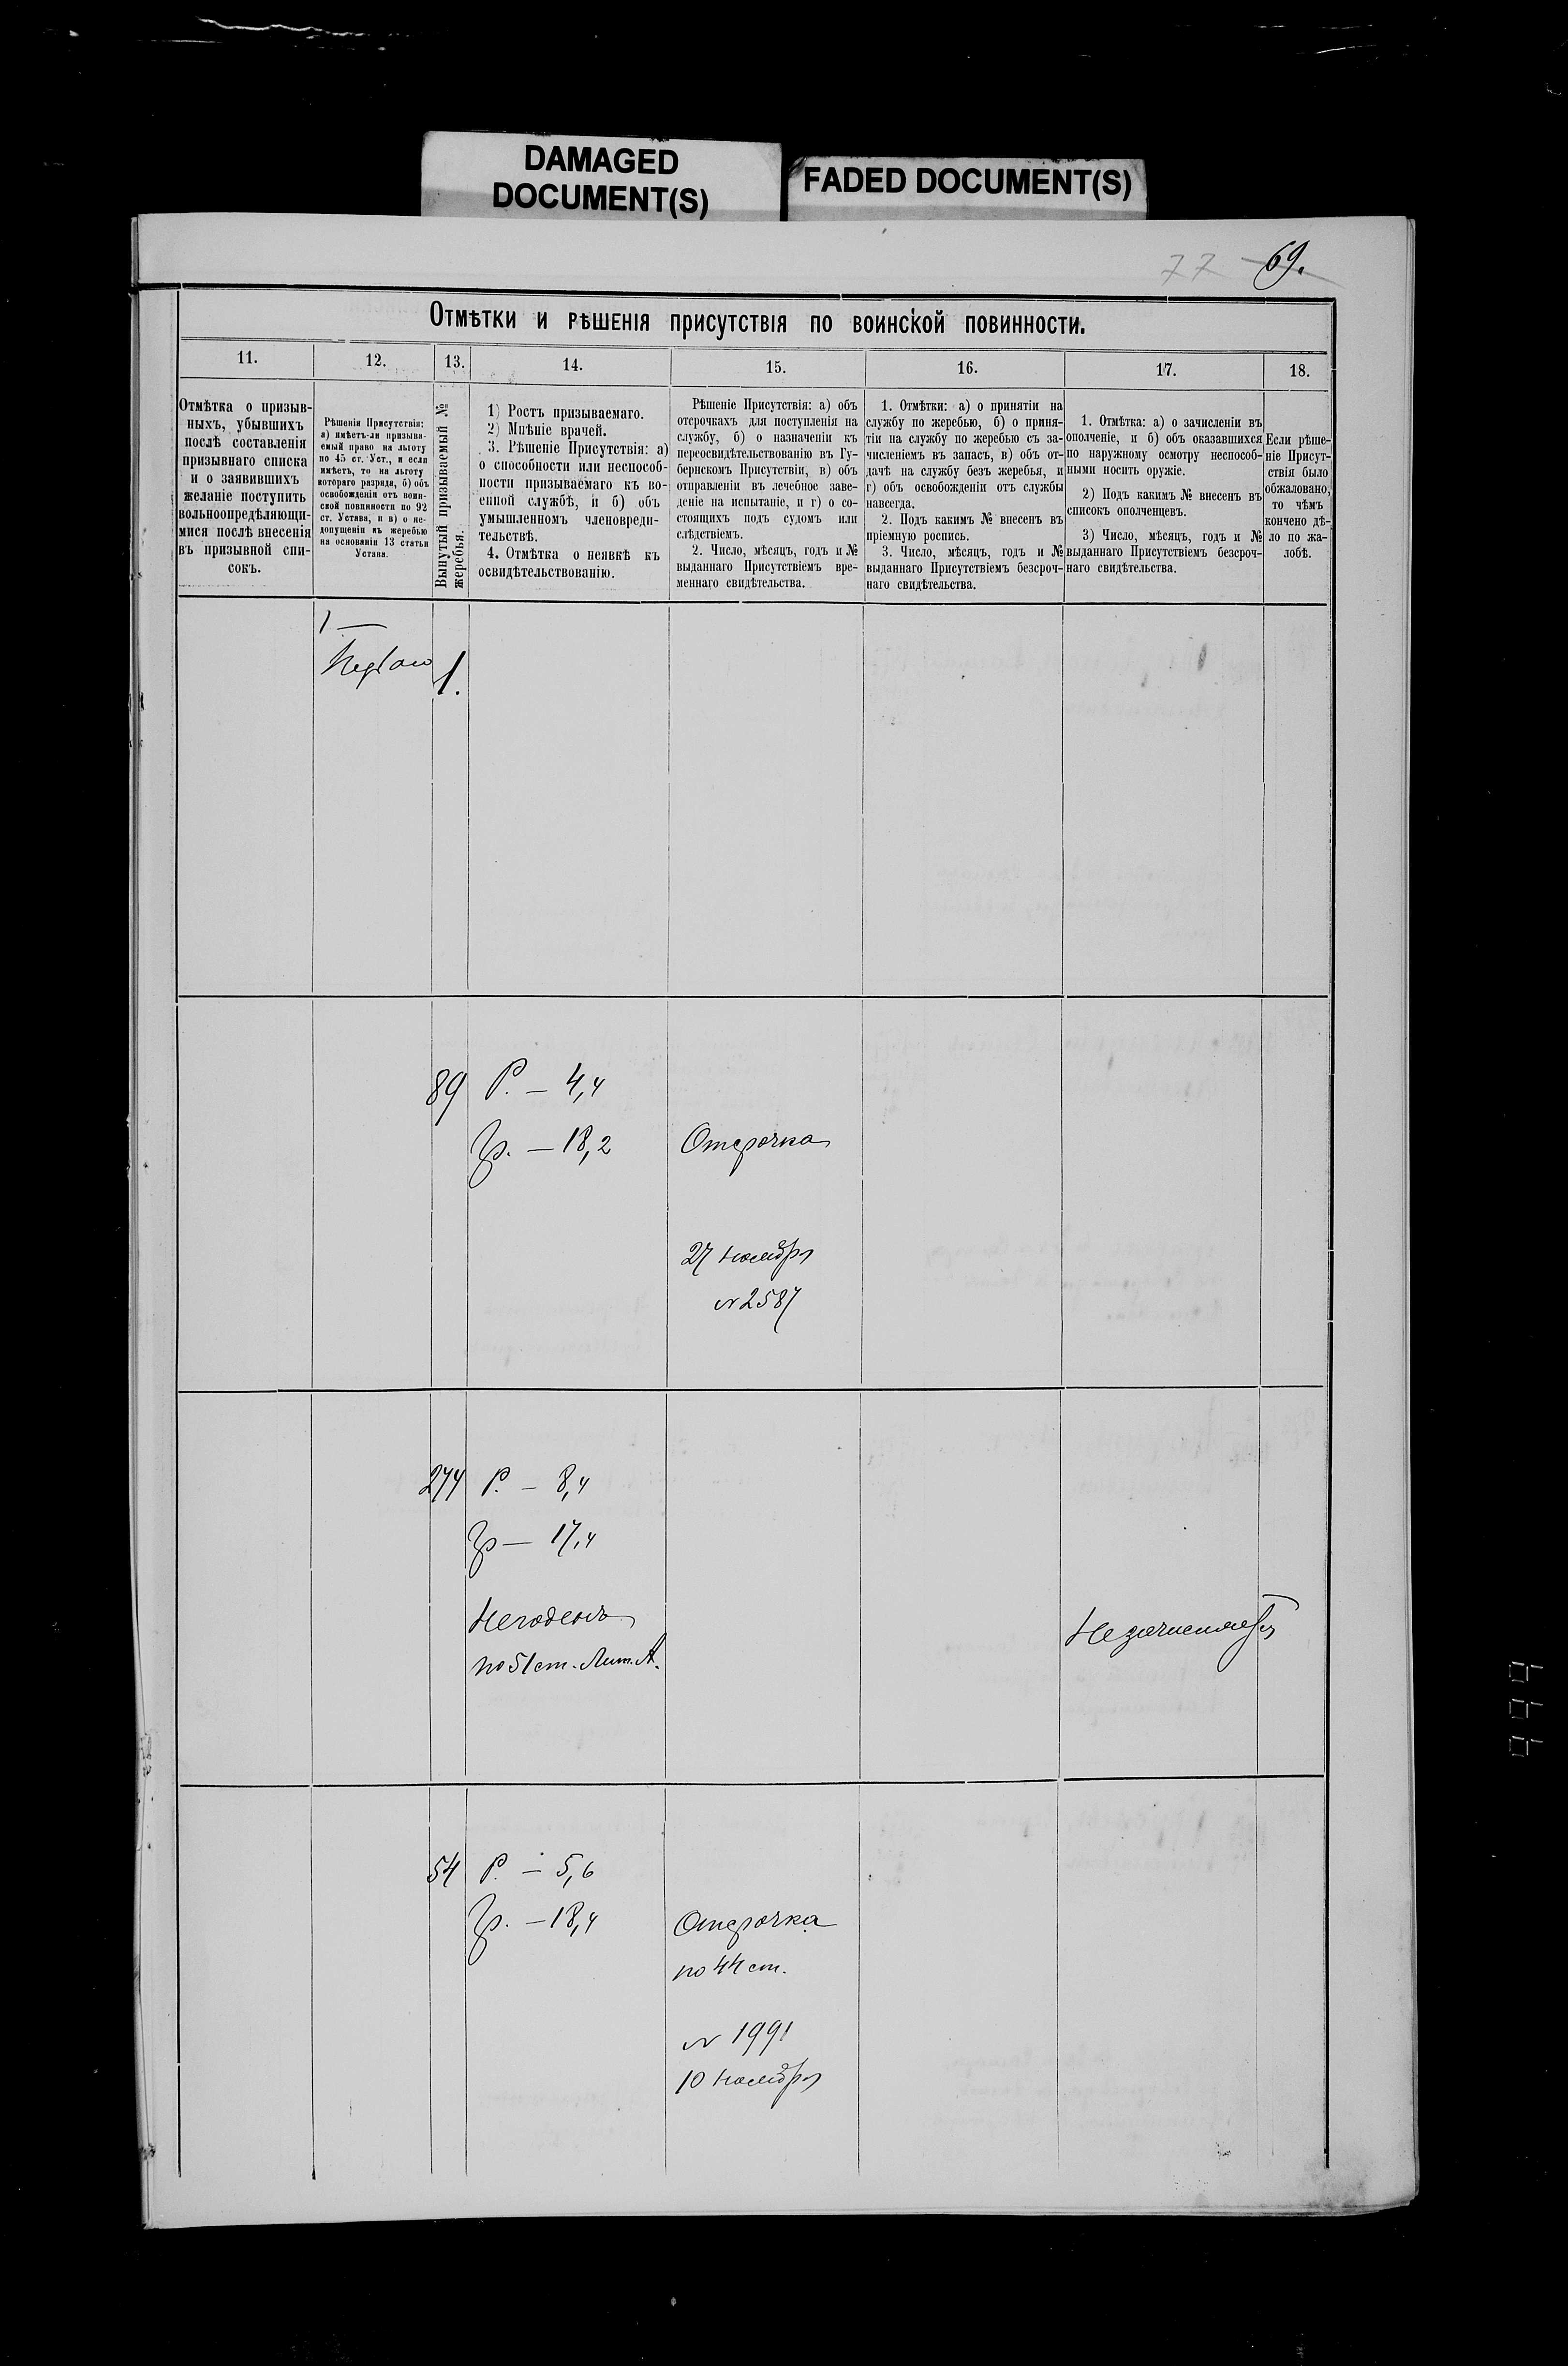 DAMAGED
DOCUMENT(S)
FADED DOCUMENT(S)
77 69.
Отмѣтки и рѣшенія присутствія по воинской повинности.
11. 12. 13. 14. 15. 16. 17. 18.
Отмѣтка о призыв-
ныхъ, убывшихъ
послѣ составленія
призывнаго списка
и о заявившихъ
желаніе поступить
вольноопредѣляющи-
мися послѣ внесенія
въ призывной спи-
сокъ.
Рѣшенія Присутствія:
а) имѣетъ-ли призыва-
емый право на льготу
по 45 ст. Уст., и если
имѣетъ, то на льготу
котораго разряда, б) объ
освобожденіи отъ воин-
ской повинности по 92
ст. Устава, и в) о не-
допущеніи къ жеребью
на основаніи 13 статьи
Устава.
Вынутый призываемый №
жеребья.
1) Ростъ призываемаго.
2) Мнѣніе врачей.
3. Рѣшеніе Присутствія: а)
о способности или неспособ-
ности призываемаго къ во-
енной службѣ, и б) объ
умышленномъ членовреди-
тельствѣ.
4. Отмѣтка о неявкѣ къ
освидѣтельствованію.
Рѣшеніе Присутствія: а) объ
отсрочкахъ для поступленія на
службу, б) о назначеніи къ
переосвидѣтельствованію въ Гу-
бернскомъ Присутствіи, в) объ
отправленіи въ лечебное заве-
деніе на испытаніе, и г) о со-
стоящихъ подъ судомъ или
слѣдствіемъ.
2. Число, мѣсяцъ, годъ и №
выданнаго Присутствіемъ вре-
меннаго свидѣтельства.
1. Отмѣтки: а) о принятіи на
службу по жеребью, б) о приня-
тіи на службу по жеребью съ за-
численіемъ въ запасъ, в) объ от-
дачѣ на службу безъ жеребья, и
г) объ освобожденіи отъ службы
навсегда.
2. Подъ какимъ № внесенъ въ
пріемную роспись.
3. Число, мѣсяцъ, годъ и №
выданнаго Присутствіемъ безсроч-
наго свидѣтельства.
1. Отмѣтка: а) о зачисленіи въ
ополченіе, и б) объ оказавшихся
по наружному осмотру неспособ-
ными носить оружіе.
2) Подъ какимъ № внесенъ въ
списокъ ополченцевъ.
3) Число, мѣсяцъ, годъ и №
выданнаго Присутствіемъ безсроч-
наго свидѣтельства.
Если рѣше-
ніе Присут-
ствія было
обжаловано,
то чѣмъ
кончено дѣ-
ло по жа-
лобѣ.
1.
89 Р. – 4,4
Гр. – 18,2 Отсрочка
27 ноября
№ 2587
274 Р. – 8,4
Гр – 17,4
Негоденъ
по 51 ст. Лит. А.
Незачисляется
54 Р. – 5,6
Гр. – 18,4 Отсрочка
по 44 ст.
№ 1991
10 ноября